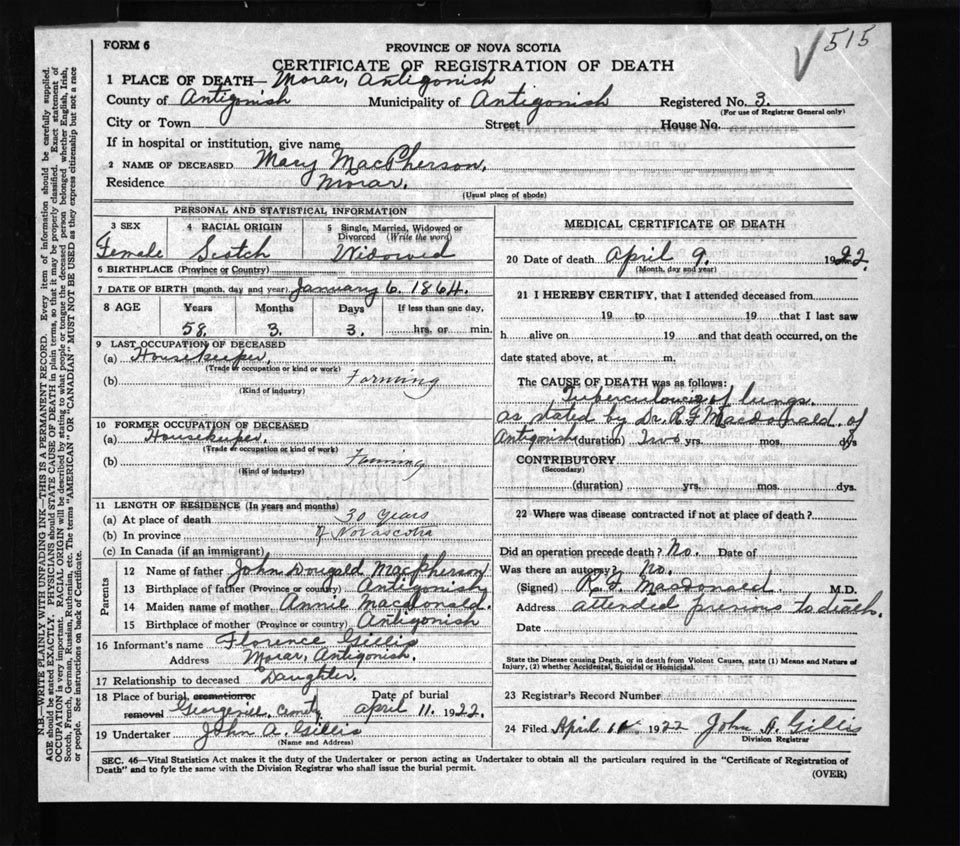 515
FORM 6
PROVINCE OF NOVA SCOTIA
CERTIFICATE OF REGISTRATION OF DEATH
1 PLACE OF DEATH— Morar, Antigonish
County of Antigonish Municipality of Antigonish Registered No. 3.
(For use of Registrar General only)
City or Town Street House No.
If in hospital or institution, give name
2 NAME OF DECEASED Mary MacPherson,
Residence Morar.
(Usual place of abode)
PERSONAL AND STATISTICAL INFORMATION
3 SEX 4 RACIAL ORIGIN 5 Single, Married, Widowed or Divorced (Write the word)
Female Scotch Widowed
6 BIRTHPLACE (Province or Country)
7 DATE OF BIRTH (month, day and year) January 6. 1864.
8 AGE Years Months Days If less than one day,
58. 3. 3. hrs. or min.
9 LAST OCCUPATION OF DECEASED
(a) Housekeeper,
(Trade or occupation or kind or work)
(b) Farming
(Kind of industry)
10 FORMER OCCUPATION OF DECEASED
(a) Housekeeper.
(Trade or occupation or kind of work)
(b) Farming
(Kind of industry)
11 LENGTH OF RESIDENCE (In years and months)
(a) At place of death 30 years
(b) In province Novascotia
(c) In Canada (if an immigrant)
Parents
12 Name of father John Dougald MacPherson
13 Birthplace of father (Province or country) Antigonish
14 Maiden name of mother Annie MacDonald.
15 Birthplace of mother (Province or country) Antigonish
16 Informant's name Florence Gillis
Address Morar, Antigonish.
17 Relationship to deceased Daughter.
18 Place of burial, cremation or removal County. Date of burial April 11. 1922.
19 Undertaker John A. Gillis
(Name and Address)
MEDICAL CERTIFICATE OF DEATH
20 Date of death April 9. 1922.
(Month, day and year)
21 I HEREBY CERTIFY, that I attended deceased from
19 to 19 that I last saw
h alive on 19 and that death occurred, on the
date stated above, at m,
The CAUSE OF DEATH was as follows:
Tuberculouis of lungs.
as stated by Dr. R F Macdonald of
Antigonish (duration) Two yrs. mos. dys
CONTRIBUTORY
(Secondary)
(duration) yrs. mos. dys.
22 Where was disease contracted if not at place of death?
Did an operation precede death? No. Date of
Was there an autopsy? No.
(Signed) R. F. Macdonald. M.D.
Address attended previous to death.
Date
State the Disease causing Death, or in death from Violent Causes, state (1) Means and Nature of
Injury, (2) whether Accidental, Suicidal or Homicidal.
23 Registrar's Record Number
24 Filed April 1922 John A. Gillis
Division Registrar
SEC. 46—Vital Statistics Act makes it the duty of the Undertaker or person acting as Undertaker to obtain all the particulars required in the "Certificate of Registration of
Death" and to fyle the same with the Division Registrar who shall issue the burial permit.
(OVER)
N.B.—WRITE PLAINLY WITH UNFADING INK—THIS IS A PERMANENT RECORD. Every item of information should be carefully supplied.
AGE should be stated EXACTLY. PHYSICIANS should STATE CAUSE OF DEATH in plain terms, so that it may be properly classified. Exact statement of
OCCUPATION is very important. RACIAL ORIGIN will be described by stating to what people or tongue the deceased person belonged whether English, Irish,
Scotch, French, German, Russian, Ruthenian, etc. The terms "AMERICAN" OR "CANADIAN" MUST NOT BE USED as they express citizenship but not a race
or people. See instructions on back of Certificate.